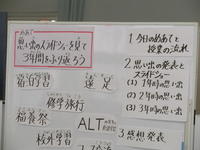 めあて
思い出のスライドショーを見て
3年間をふり返ろう
宿泊学習
遠足
修学旅行
福養祭
ALT
校外学習
1 今日のめあてと
授業の流れ
2 思い出の発表と
スライドショー
(1) 1年時の思い出
(2) 2年時の思い出
(3) 3年時の思い出
3 感想発表